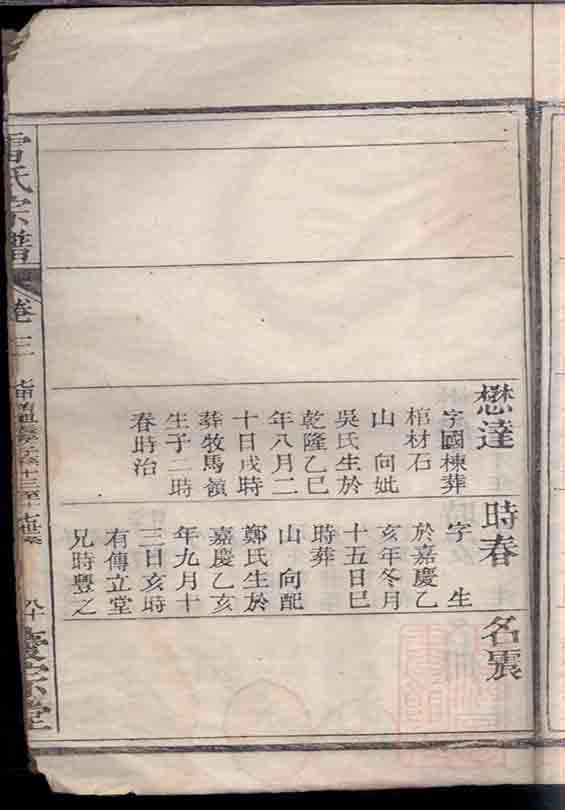 懋達
字國棟葬
棺材石
山　向妣
吳氏生於
乾隆乙巳
年八月二
十日戌時
葬牧馬嶺
生子二時
春時治
時春
字　生
於嘉慶乙
亥年冬月
十五日巳
時葬
山　向配
鄭氏生於
嘉慶乙亥
年九月十
三日亥時
有傳立堂
兄時豐之
名震
雷氏宗譜
卷三